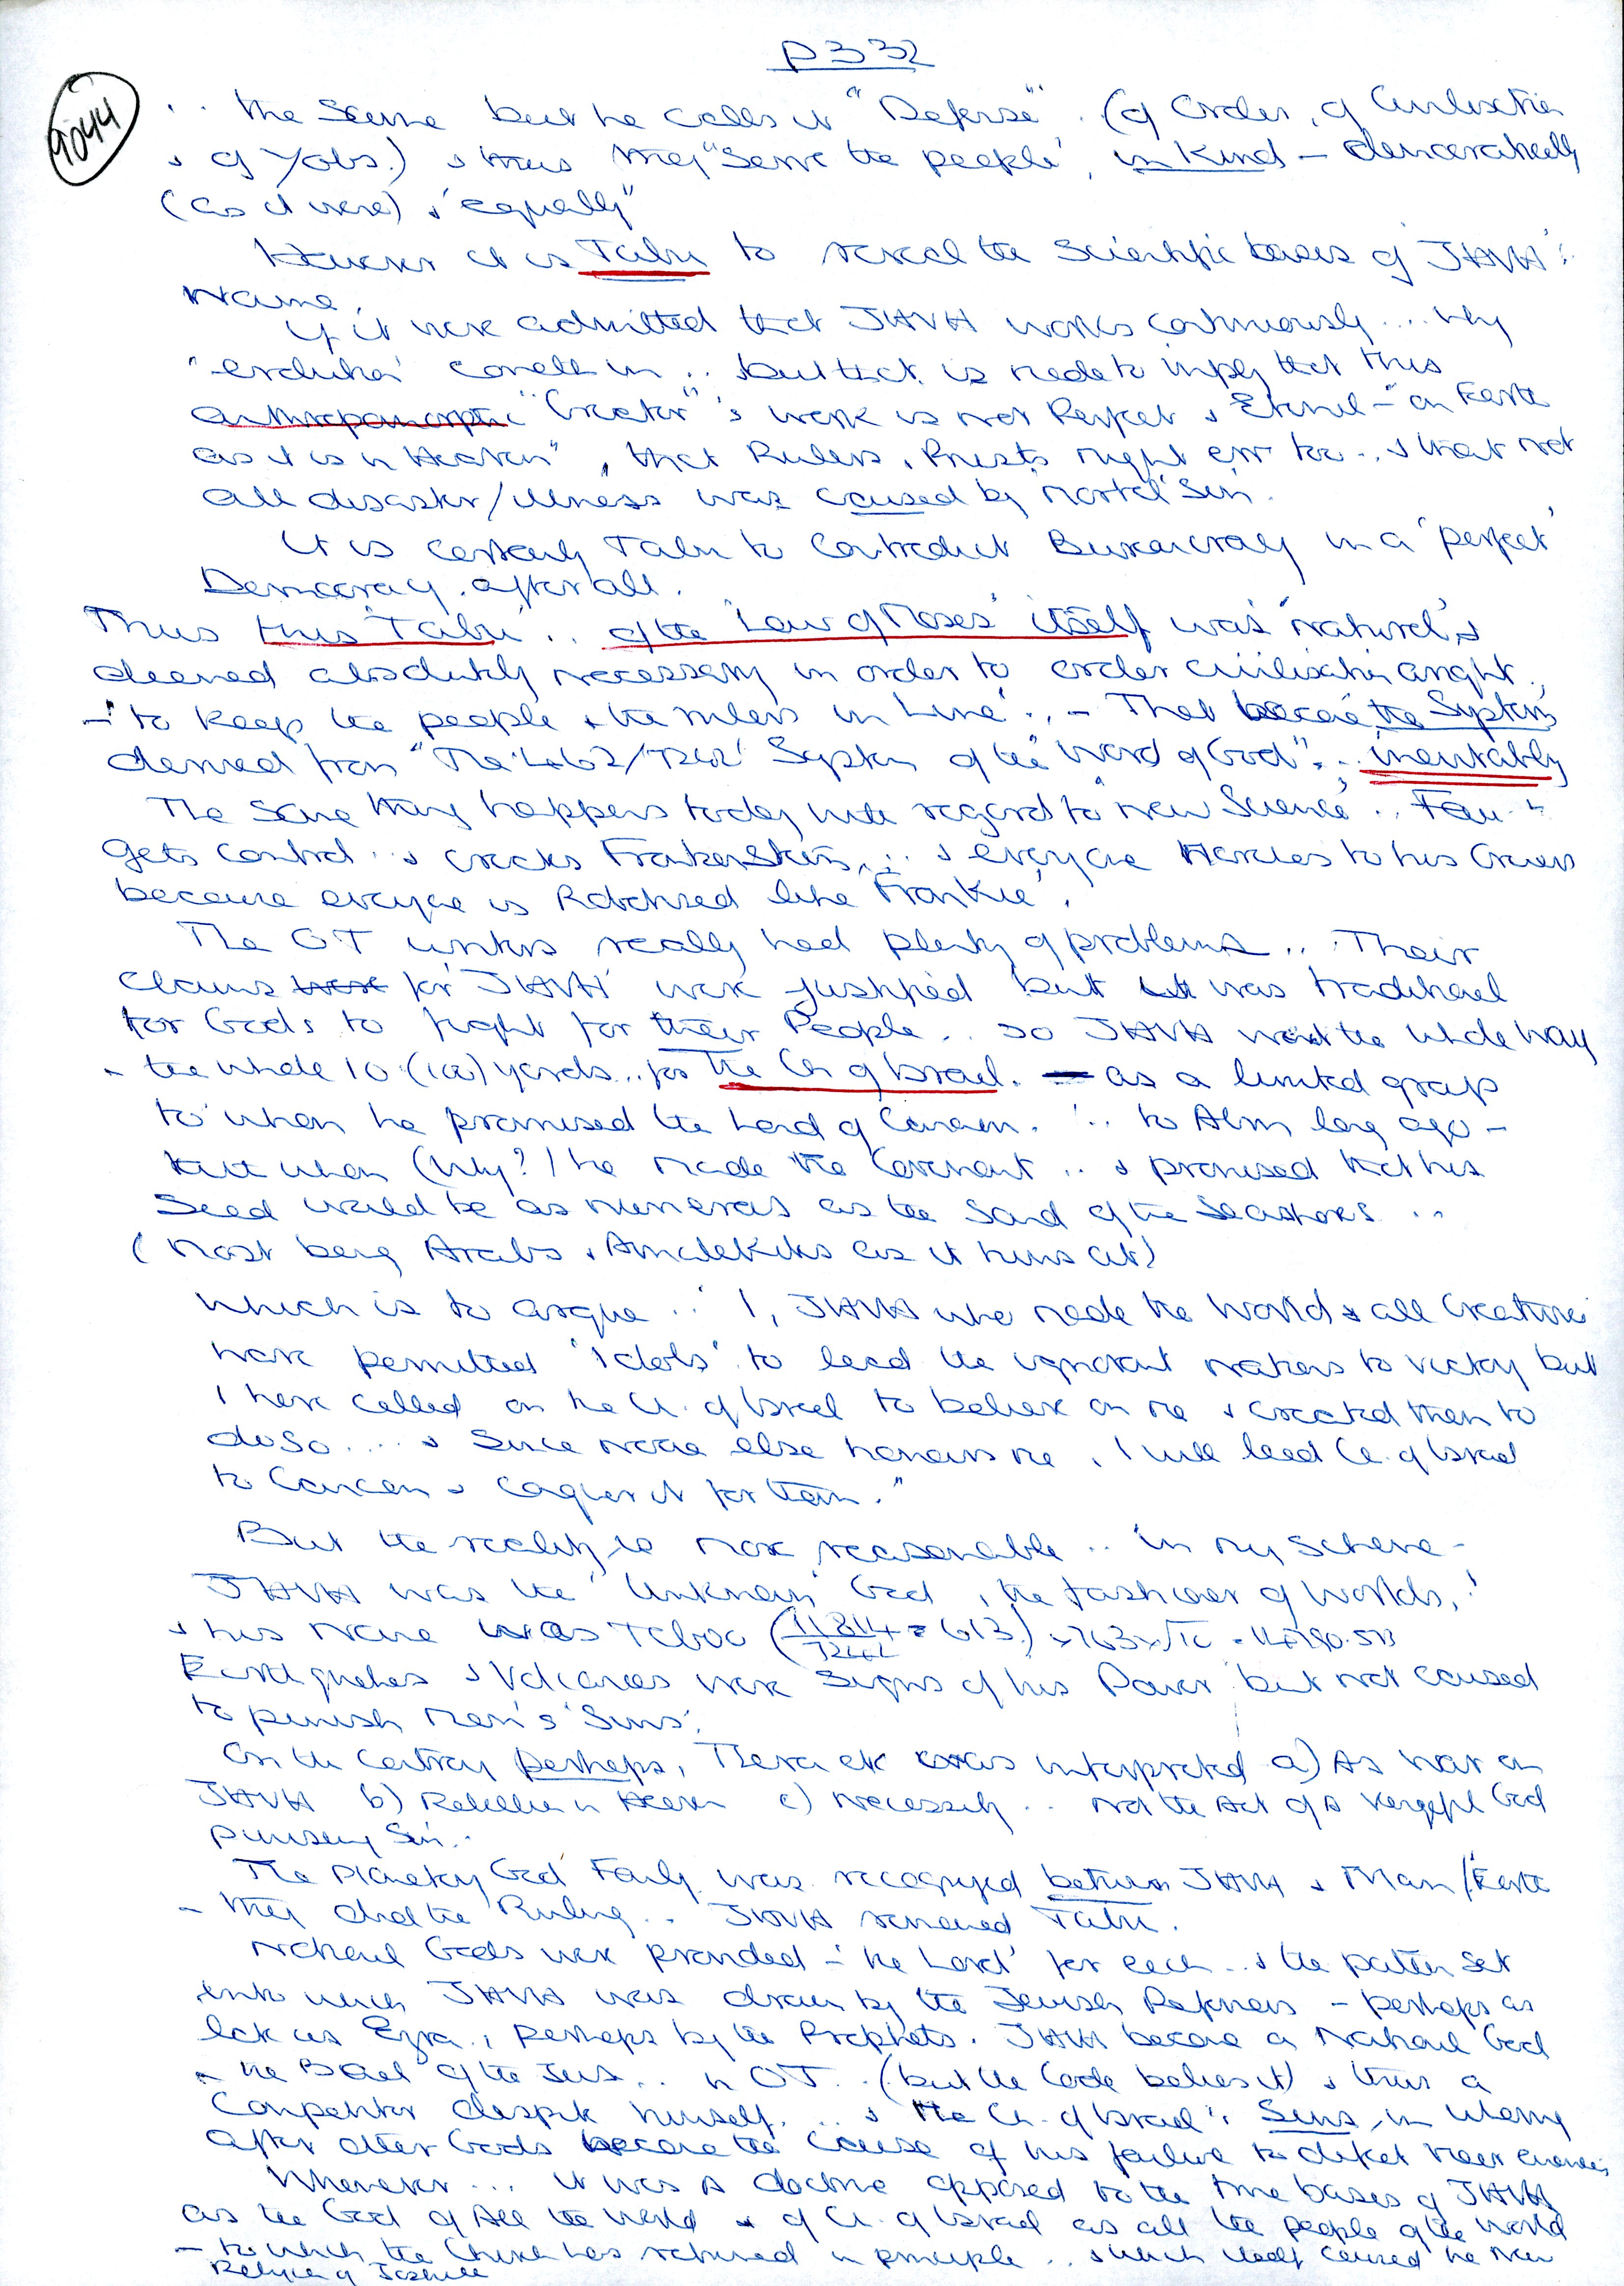 P 332
9044
.. the Same but he calls it "Defense". (of Order, of Civilisation
& of Yobs.) & thus they "Serve the people", in Kind – democratically
(as it were) & 'equally"
However it is Tabu to reveal the Scientific bases of JHVH's
Name.
If it were admitted that JHVH works continuously ... why
'evolution' comes in .. but that is made to imply that this
anthropomorphic "Creator"'s work is not Perfect & Eternal – "on Earth
as it is in Heaven", that Rulers, Priests might err too .. & that not
all disaster/illness was caused by 'mortal' Sin.
It is certainly Tabu to Contradict Bureaucracy in a 'perfect'
Democracy. after all.
Thus this 'Tabu' .. of the 'Law of Moses' itself was 'natural' &
deemed absolutely necessary in order to order civilisation aright.,
– 'to keep the people & the rulers in Line'., – That became the System
derived from "The System of the "Word of God" .. inevitably
The Same thing happens today with regard to 'new Science' ..
gets control .. & creates Frankensteins, .. & everyone to his
because everyone is Robotised like 'Frankie'.
The OT writers really had plenty of problems ... Their
claims for 'JHVH' were justified but it was traditional
for Gods to fight for their People .. so JHVH went the whole way
– the whole 10 (100) yards .. for The Ch of Israel. – as a limited group
to whom he promised the Land of Canaan. '.. to Abm long ago –
but when (Why?) he made the Covenant .. & promised that his
Seed would be as numerous as the Sand of the Seashores ..
(most being Arabs & Amalekites as it turns out)
Which is to argue .. 'I, JHVH who made the World & all Creatures
have permitted 'idols' to lead the ignorant nations to victory but
I have called on the Ch. of Israel to believe on me & created them to
do so .... & Since none else honours me, I will lead Ch. of Israel
to Canaan & Conquer it for them."
But the reality is more reasonable .. in my Scheme –
JHVH was the 'Unknown' God, the fashioner of Worlds,
& his Name was Taboo
Earthquakes & Volcanoes were Signs of his Power but not caused
to punish Men's 'Sins'.
On the Contrary perhaps, Thera etc was interpreted a) As War on
JHVH b) Rebellion in Heaven c) Necessity .. not the Act of a Vengeful God
punishing Sin ..
The Planetary God Family was recognised between JHVH & Man/Earth
– they did the 'Ruling .. JHVH remained Tabu.
National Gods were provided – 'the Lord' for each .. & the pattern set
into which JHVH was drawn by the Jewish Reformers – perhaps as
late as Ezra, perhaps by the Prophets. JHVH became a National God
– the Baal of the Jews .. in OT .. (but the Code belies it) & thus a
Competitor despite himself. .. & the Ch. of Israel's Sins, in Whoring
after other Gods became the Cause of his failure to defeat their enemies
However ... it was a doctrine opposed to the true bases of JHVH
as the God of All the World & of Ch. of Israel as all the people of the World
– to which the Church has returned in principle .. & which itself caused the New
Religion of